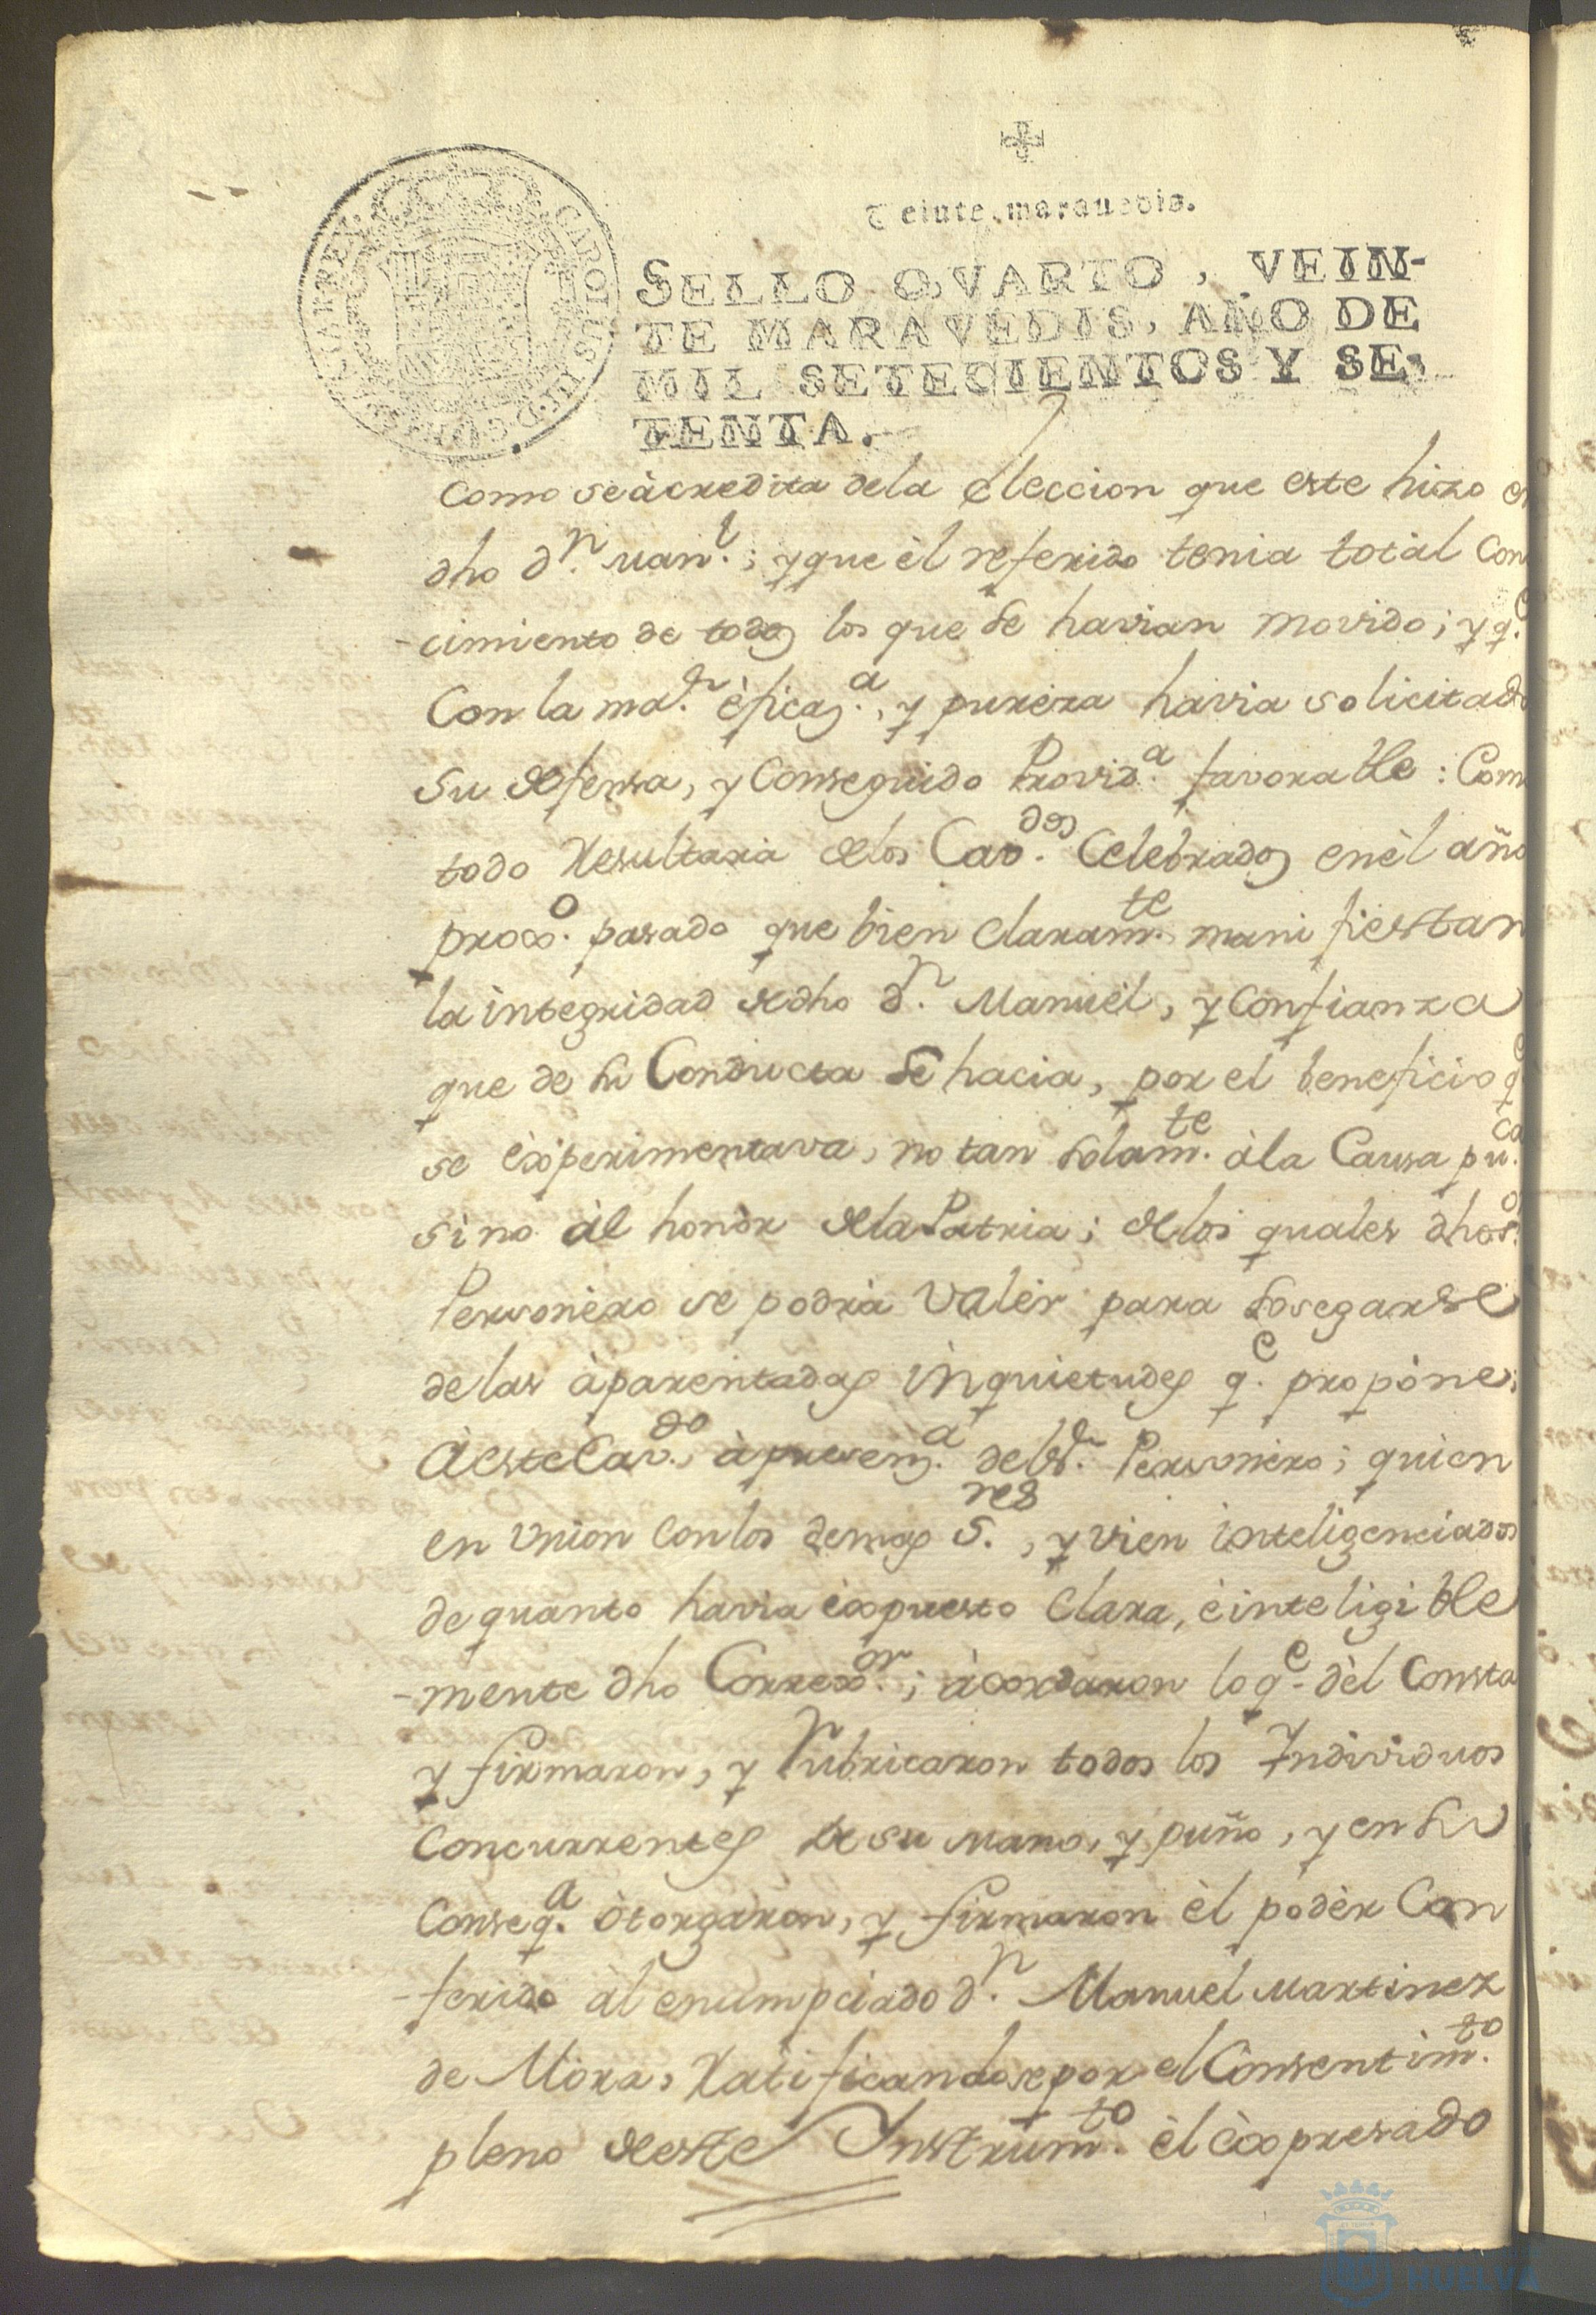 Veinte marauedis.
SELLO QVARTO, VEIN-
TE MARAVEDIS, AÑO DE
MIL SETECIENTOS Y SE-
TENTA.
Como se àcredita dela eleccion que este hizo en
dho dn. Manl.; y que èl referido tenia totàl Con
-cimiento de todos los que se havian movido; y qe.
Con la mar. èficaza., y pureza havia solicitado
Su defensa, y Conseguido Provida. favorable: Com
todo Resultaria delos Cavdos. Celebrados enèl año
proxo. pasado que bien Claramte. manifiestan
la integridad de dho dn. Manuèl, y Confianza
que de su Conducta se hacia, por el beneficio qe
se èxperimentava, no tan solamte. àla Causa puca.
sino àl honòr dela Patria; delos quales dhos.
Personèro se podrà valèr para sosegarse
de las àparentadas inquietudes qe. propòne;
À este Cavdo., à presenza. del Sr. Personero; quien
en Union con los demas Sres., y vien inteligenciados
de quanto havia èxpuesto Clara, è inteligible
-mente dho Correxor.; àcordaron lo qe. dèl Consta
y firmaron, y Rubricaron todos los Individuos
Concurrentes de su mano, y puño, y en su
Conseqa. òtorgaron, y firmaron èl podèr Con
-ferido àl enumpciado dn. Manuel Martinez
de Mòra, Ratificandose por el Consentimto.
pleno de este Instrumto. èl èxpresado
HUELVA